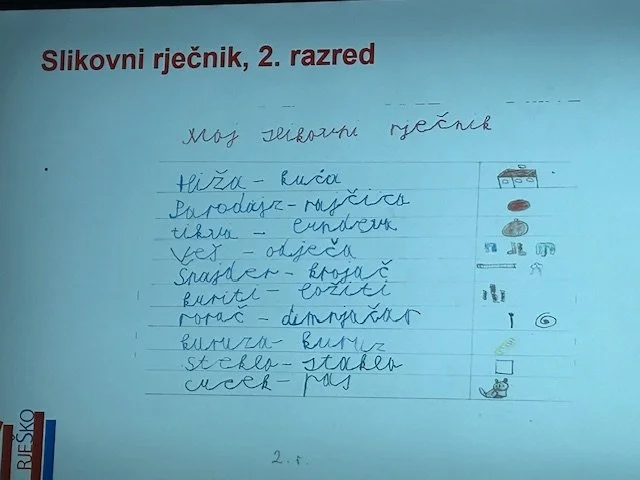 Slikovni rječnik, 2. razred
Moj slikovni rječnik
Hiža – kuća
Parodajz – rajčica
tikva –
Veš – odjeća
Šnajder – krojač
kuriti – ložiti
rorač – dimnjačar
kuruza – kuruz
steklo – staklo
cucek – pas
2. r.
RJEŠKO